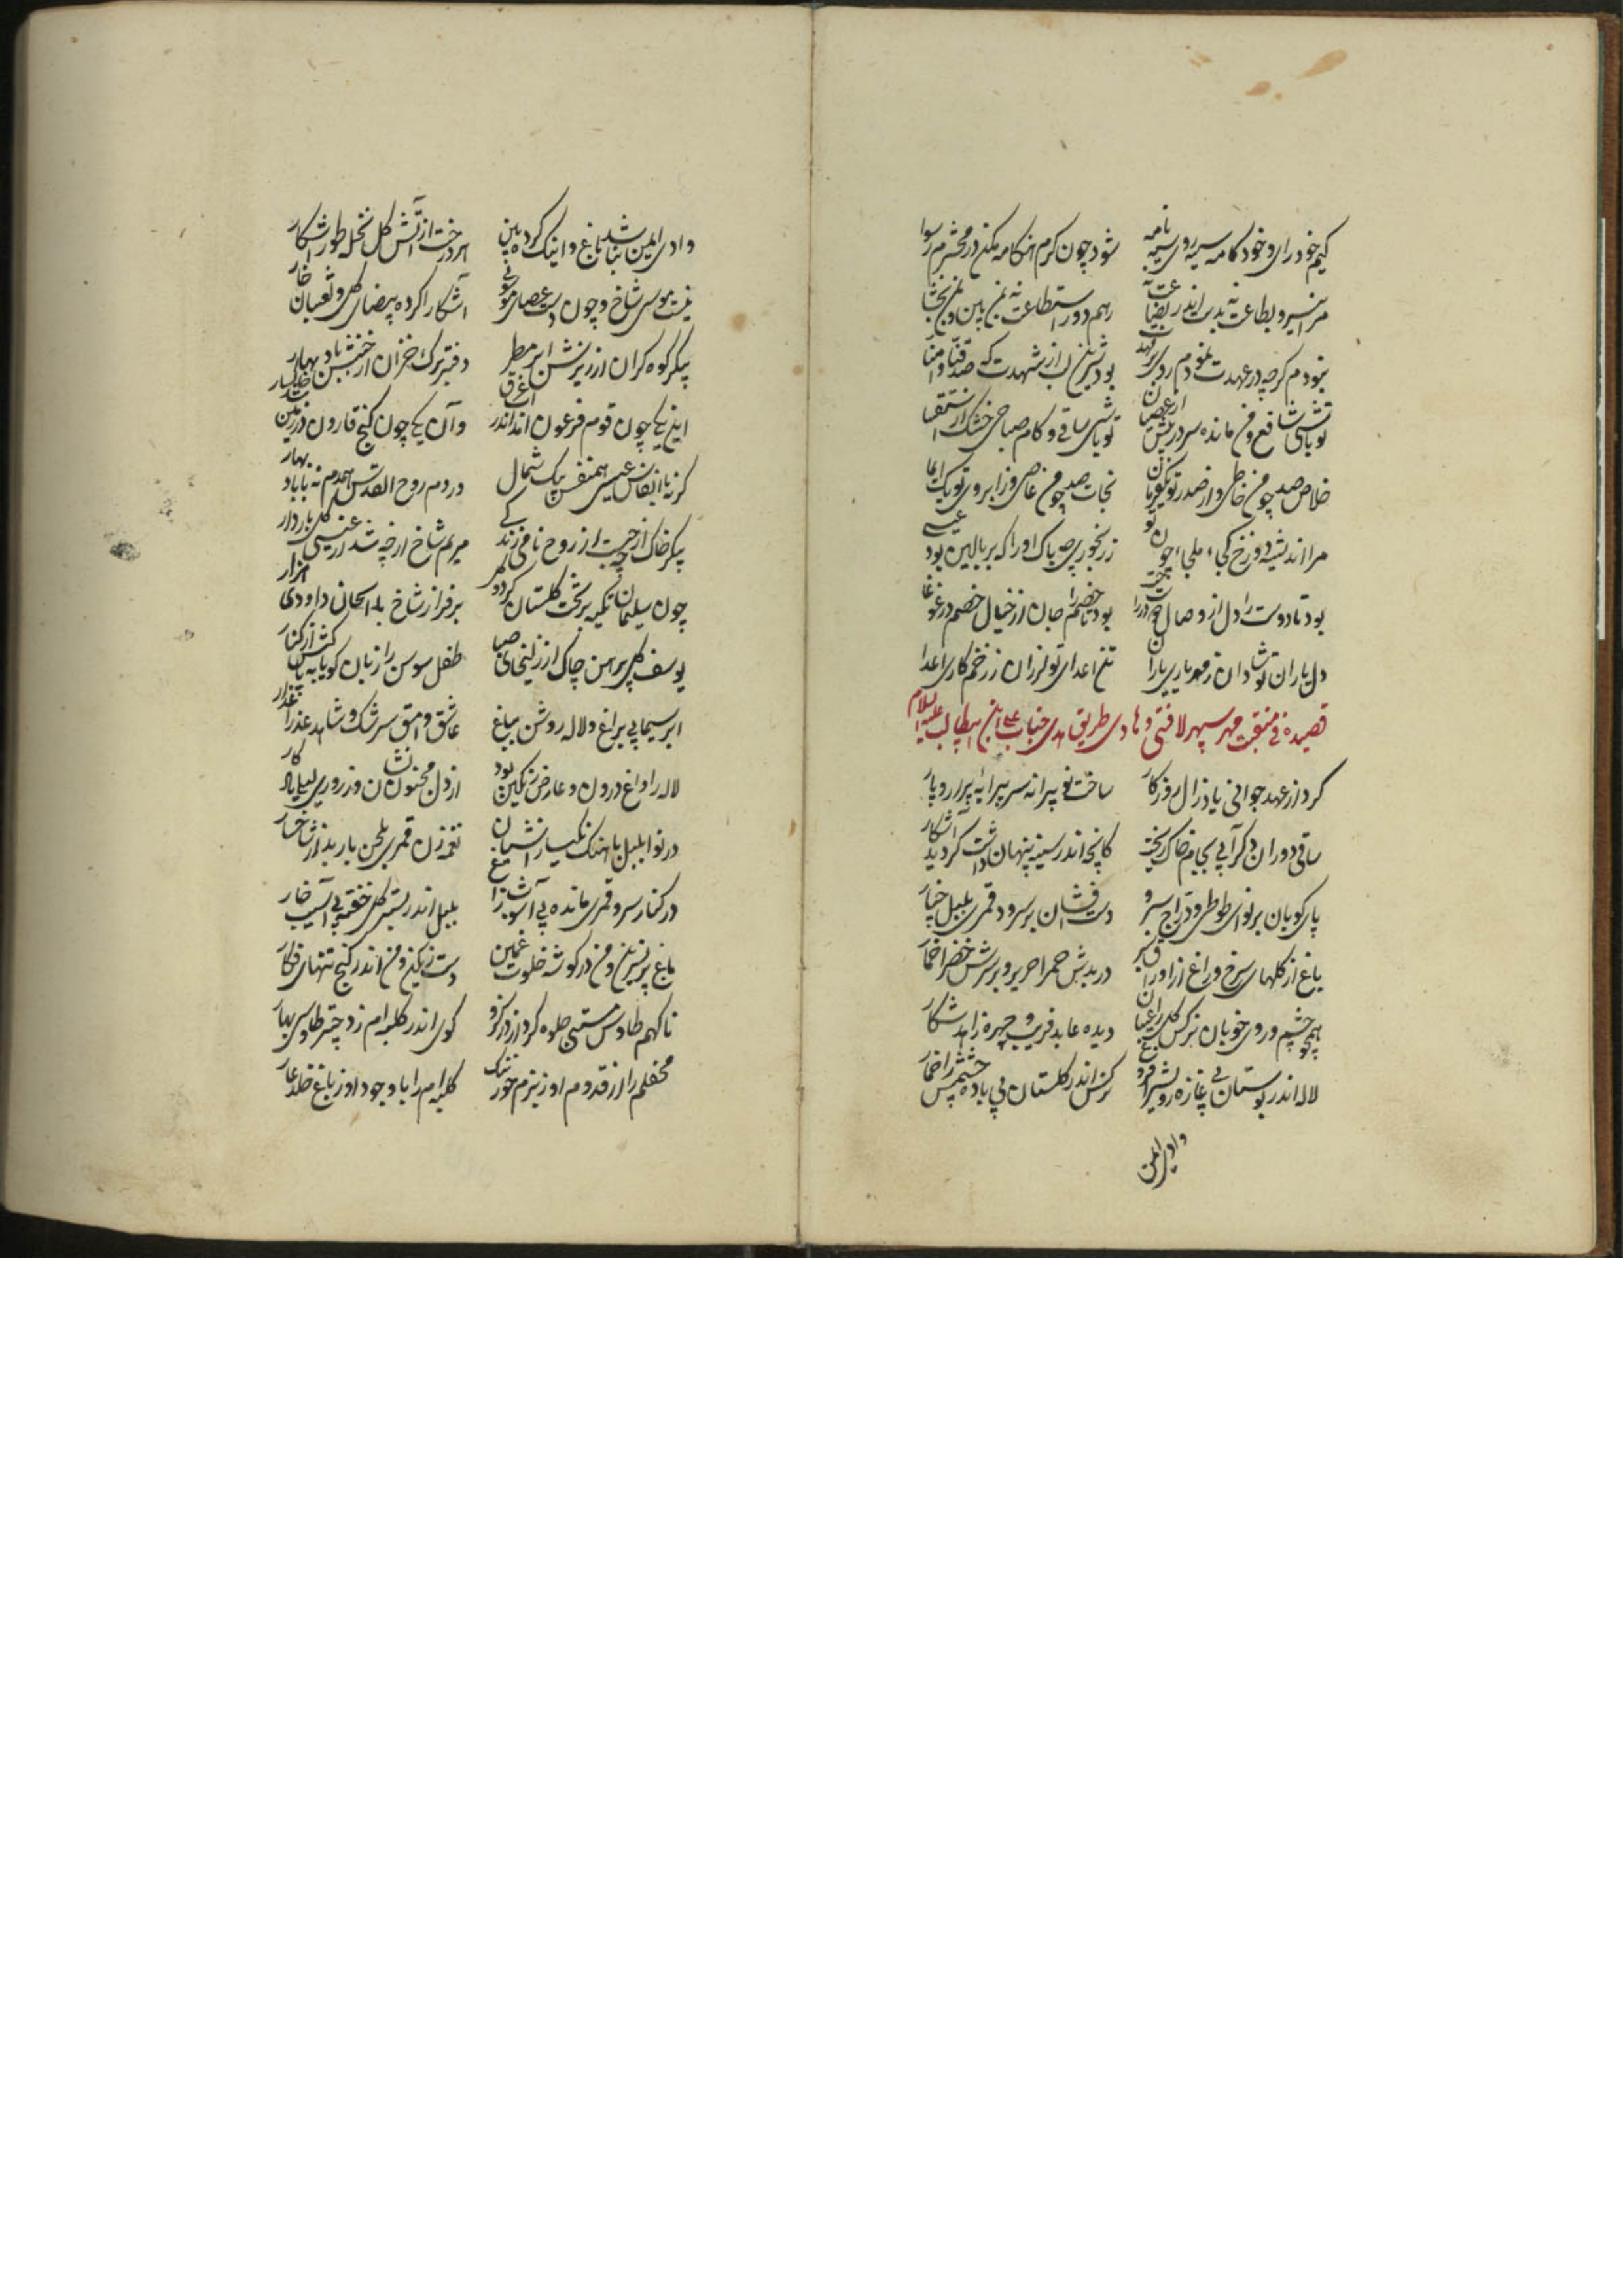 کیم خود رای و خود کامه سیه روی سیه نامه شود چون کرم هنکامه مکن در محشرم رسوا
مرا نیرو بطاعت نه بدست اندر بضاعت نه رهم دور استطاعت نه بمن بین و بمن بخشا
نبودم کرچه در عهدت
تو باشی شافع و من مانده سر در پیش از عصیان تو باشی ساقی و کام صباحی خشک از استسقا
خلاص صد چو من خاطی و از صدر تو یکفرمان نجات صد چو من عاصی و ز ابروی تو یک ایما
مرا اندیشه دوزخ کجا، ملجاء چون تو ز رنجوری چه باک اورا که بر بالین بود عیسی
بود تا دوست را دل از وصال دوست در جنت بود تا خصم را جان از خیال خصم در غوغا
دل یاران تو شادان ز مهر یاری یاران تن اعدای تو لرزان ز زخم کاری اعدا
قصیده فی منقبت مهر سپهر لافتی و هادی طریق هدی جناب علی ابن ابیطالب علیه السلام
کرد از عهد جوانی یاد زال روزکار ساخت نو پیرانه سر پیرایه پیرار و پار
ساقی دوران دکر آبی بجام خاک ریخت کانچه اندر سینه پنهان داشت کردید آشکار
پای کوبان بر نوای طوطی و دراج سرو دست افشان بر سرود قمری و بلبل چنار
باغ از کلهای سرخ و راغ از اوراق سبز در برش حمرا حریر و بر سرش خضرا خمار
همچو چشم و روی خوبان نرکس و کل را عیان دیده عابد فریب و چهره زاهد شکار
لاله اندر بوستان بی غازه رویش را فروغ نرکس اندر کلستان بی باده چشمش را خمار
وادی ایمن
وادی ایمن نباشد باغ و اینک کرده بین هر درخت از آتش کل نخله طور آشکار
نیست موسی شاخ و چون دست و عصای موسوی آشکارا کرده بیضای کل و ثعبان خار
پیکر کوه کران از ریزش ابر مطیر دفتر برک خزان از جنبش باد بهار
این یکی چون قوم فرعون اندر آب غرق وآن یکی چون کنج قارون در زمین
کر نه با انفاس عیسی همنفس پیک شمال در دم روح القدس همدم نه با باد بهار
پیکر خاک از چه جست از روح نامی زندکی مریم شاخ از چه شد از عیسی کل باردار
چون سلیمان تکیه بر تخت کلستان کرد و بر فراز شاخ با الحان داودی هزار
یوسف کل پیرهن چاک از زلیخای صبا طفل سوسن را زبان کویا به پاکش از کنار
ابر سیمابی براغ و لاله روشن بباغ عاشق وامق سرشک و شاهد عذرا عذار
لاله را داغ درون و عارض رنکین بود از دل مجنون نشان وز روی لیلی یادکار
در نوا بلبل باهنک نکیسا ز آشیان نغمه زن قمری بلحن باربد از شاخسار
در کنار سرو قمری مانده بی آشوب زاغ بلبل اندر بستر کل خفته بی آسیب خار
باغ پر نسرین و من در کوشه خلوت غمین دست رنکین و من اندر کنج تنهائی فکار
ناکهم طاوس مستی جلوه کرد از در کزو کوی اندر کلبه ام زد چتر طاوس بهار
محفلم را از قدوم او ز بزم حور ننک کلبه ام را با وجود او ز باغ خلد عار